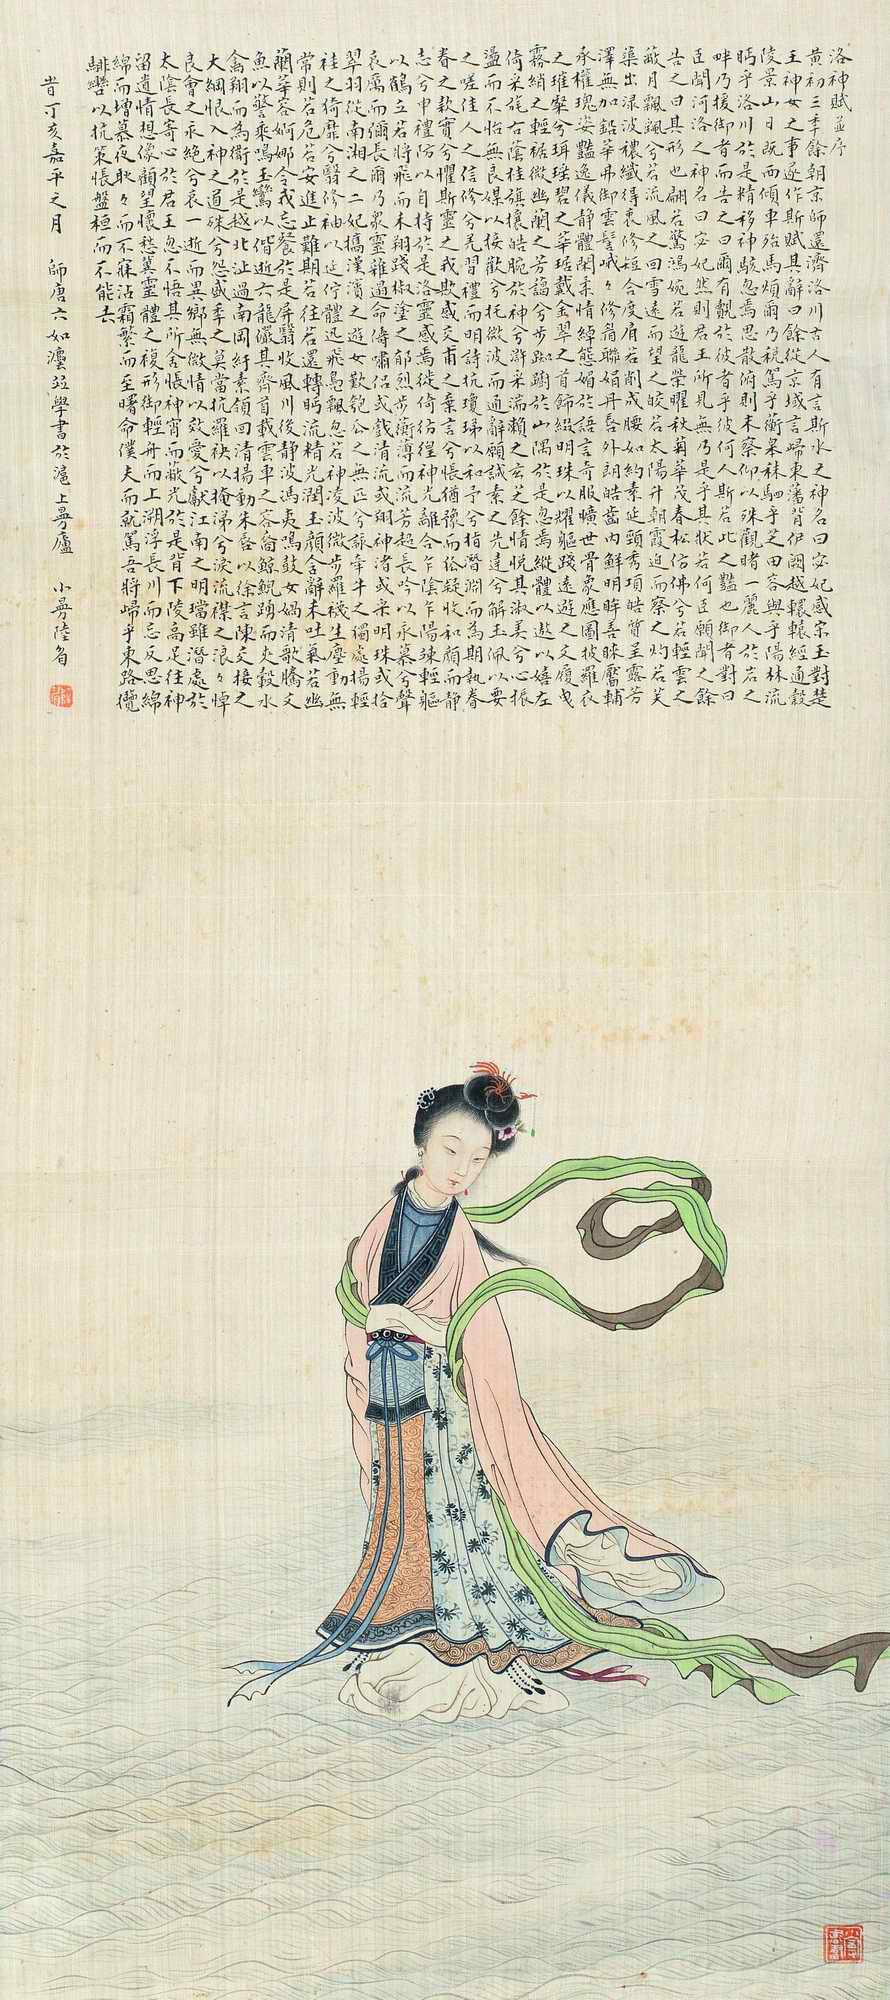 洛神賦並序
黄初三季餘朝京師還濟洛川古人有言斯水之神名曰宓妃感宋玉對楚
王神女之事遂作斯賦其辭曰餘從京域言歸東藩背伊闕越轘轅經通穀
陵景山日既而傾車殆馬煩爾乃稅駕乎蘅皋秣駟乎芝田容與乎陽林流
眄乎洛川於是精移神駭忽焉思散俯則未察仰以殊觀睹一麗人於岩之
畔乃援御者而告之曰爾有覿於彼者乎彼何人斯若此之豔也御者對曰
臣聞河洛之神名曰宓妃然則君王所見無乃是乎其狀若何臣願聞之餘
告之曰其形也翩若驚鴻婉若遊龍榮曜秋菊華茂春松仿佛兮若輕雲之
蔽月飄颻兮若流風之回雪遠而望之皎若太陽升朝霞迫而察之灼若芙
蕖出淥波穠纖得衷修短合度肩若削成腰如約素延頸秀項皓質呈露芳
澤無加鉛華弗御雲髻峨々修眉聯娟丹唇外朗皓齒內鮮明眸善睞靨輔
承權瑰姿豔逸儀靜體閑柔情綽態媚於語言奇服曠世骨象應圖披羅衣
之璀粲兮珥瑤碧之華琚戴金翠之首飾綴明珠以耀軀踐遠遊之文履曳
霧綃之輕裾微幽蘭之芳藹兮步踟躕於山隅於是忽焉縱體以遨以嬉左
倚采旄右蔭桂旗攘皓腕於神兮滸采湍瀨之玄芝餘情悅其淑美兮心振
盪而不怡無良媒以接歡兮托微波而通辭願誠素之先達兮解玉佩以要
之嗟佳人之信修兮羌習禮而明詩抗瓊珶以和予兮指潛淵而為期執眷
眷之款實兮懼斯靈之我欺感交甫之棄言兮悵猶豫而狐疑收和顏而靜
志兮申禮防以自持於是洛靈感焉徙倚彷徨神光離合乍陰乍陽竦輕軀
以鶴立若將飛而未翔踐椒塗之郁烈步蘅薄而流芳超長吟以永慕兮聲
哀厲而彌長爾乃眾靈雜遝命儔嘯侶或戲清流或翔神渚或采明珠或拾
翠羽從南湘之二妃攜漢濱之遊女歎匏瓜之無匹兮詠牽牛之獨處揚輕
袿之猗靡兮翳修袖以延佇體迅飛鳧飄忽若神凌波微步羅襪生塵動無
常則若危若安進止難期若往若還轉眄流精光潤玉顏含辭未吐氣若幽
蘭華容婀娜令我忘餐於是屏翳收風川後靜波馮夷鳴鼓女媧清歌騰文
魚以警乘鳴玉鸞以偕逝六龍儼其齊首載雲車之容裔鯨鯢踴而夾轂水
禽翔而為衛於是越北沚過南岡紆素領回清揚動朱唇以徐言陳交接之
大綱恨人神之道殊兮怨盛季之莫當抗羅袂以掩涕兮淚流襟之浪々悼
良會之永絕兮哀一逝而異鄉無微情以效愛兮獻江南之明璫雖潛處於
太陰長寄心於君王忽不悟其所舍悵神宵而蔽光於是背下陵高足往神
留遺情想像顧望懷愁冀靈體之複形御輕舟而上溯浮長川而忘反思綿
綿而增慕夜耿々而不寐沾霜繁而至曙命僕夫而就駕吾將歸乎東路攬
騑轡以抗策悵盤桓而不能去
旹丁亥嘉平之月 師唐六如灋並學書於滬上曼廬 小曼陸眉